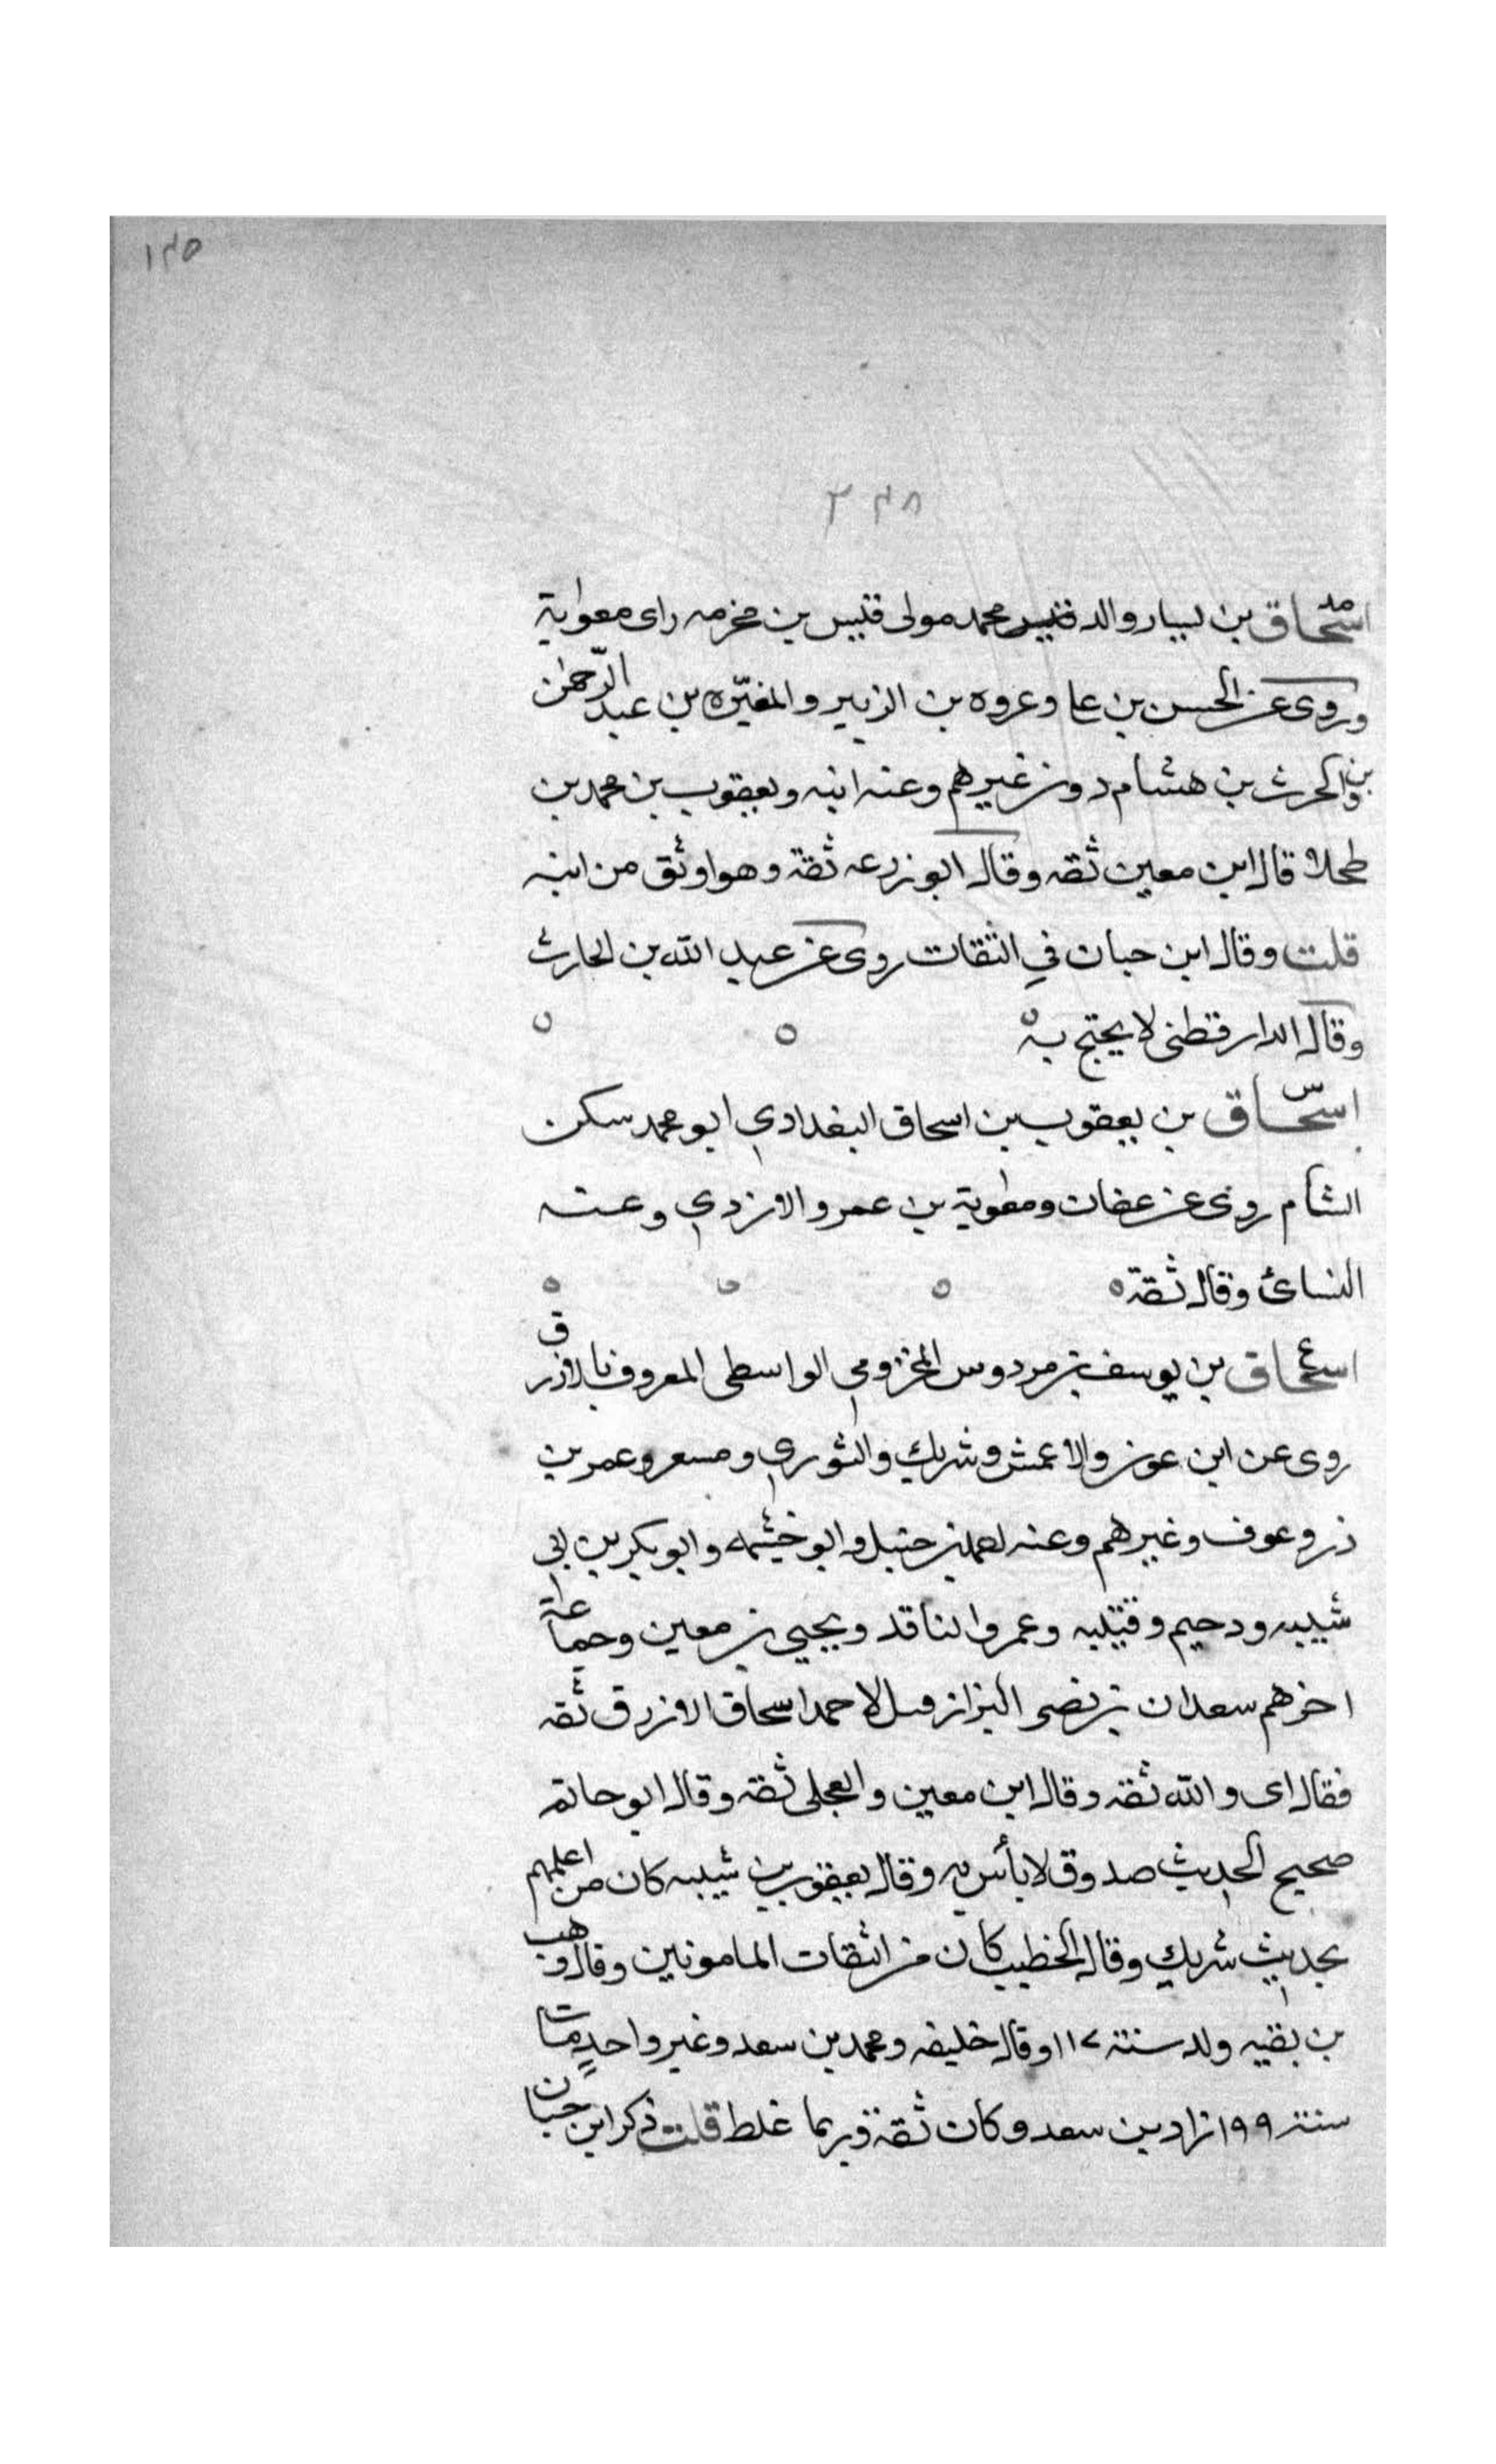 ١٣٥
٣٣٨
اسحاق بن يسار والد قيس محمد مولى قيس بن مخرمه راى معوية
وروى عن الحسن بن علي وعروه بن الزبير والمغيره بن عبد الرحمن
بن الحرث بن هشام دون غيرهم وعنه ابنه ويعقوب بن محمد بن
طحلا قال ابن معين ثقه وقال ابو زرعه ثقة وهو اوثق من ابنه
قلت وقال ابن حبان في الثقات روى عن عبد الله بن الحارث
وقال الدارقطنى لا يحتج به
اسحاق بن يعقوب بن اسحاق البغدادي ابو محمد سكن
الشام روى عن عفان ومعوية بن عمرو الازدي وعنه
النسائ وقال ثقة
اسحاق بن يوسف بن مردوس المخزومي الواسطى المعروف بالازرق
روى عن ابن عون والاعمش وشريك والثوري ومسعر وعمر بن
ذر وعوف وغيرهم وعنه احمد بن حنبل وابو خيثمه وابو بكر بن ابي
شيبه ودحيم وقتيبه وعمرو الناقد ويحيي بن معين وجماعة
اخرهم سعدان بن نصر البزاز قيل لاحمد اسحاق الازرق ثقه
فقال اى والله ثقه وقال ابن معين والعجلى ثقه وقال ابو حاتم
صحيح الحديث صدوق لا بأس به وقال يعقوب بن شيبه كان من اعلمهم
بحديث شريك وقال الخطيب كان من الثقات المامونين وقال وهب
بن بقيه ولد سنة ١١٧ وقال خليفه ومحمد بن سعد وغير واحد مات
سنة ١٩٩ زاد بن سعد وكان ثقة وربما غلط قلت ذكر ابن حبان